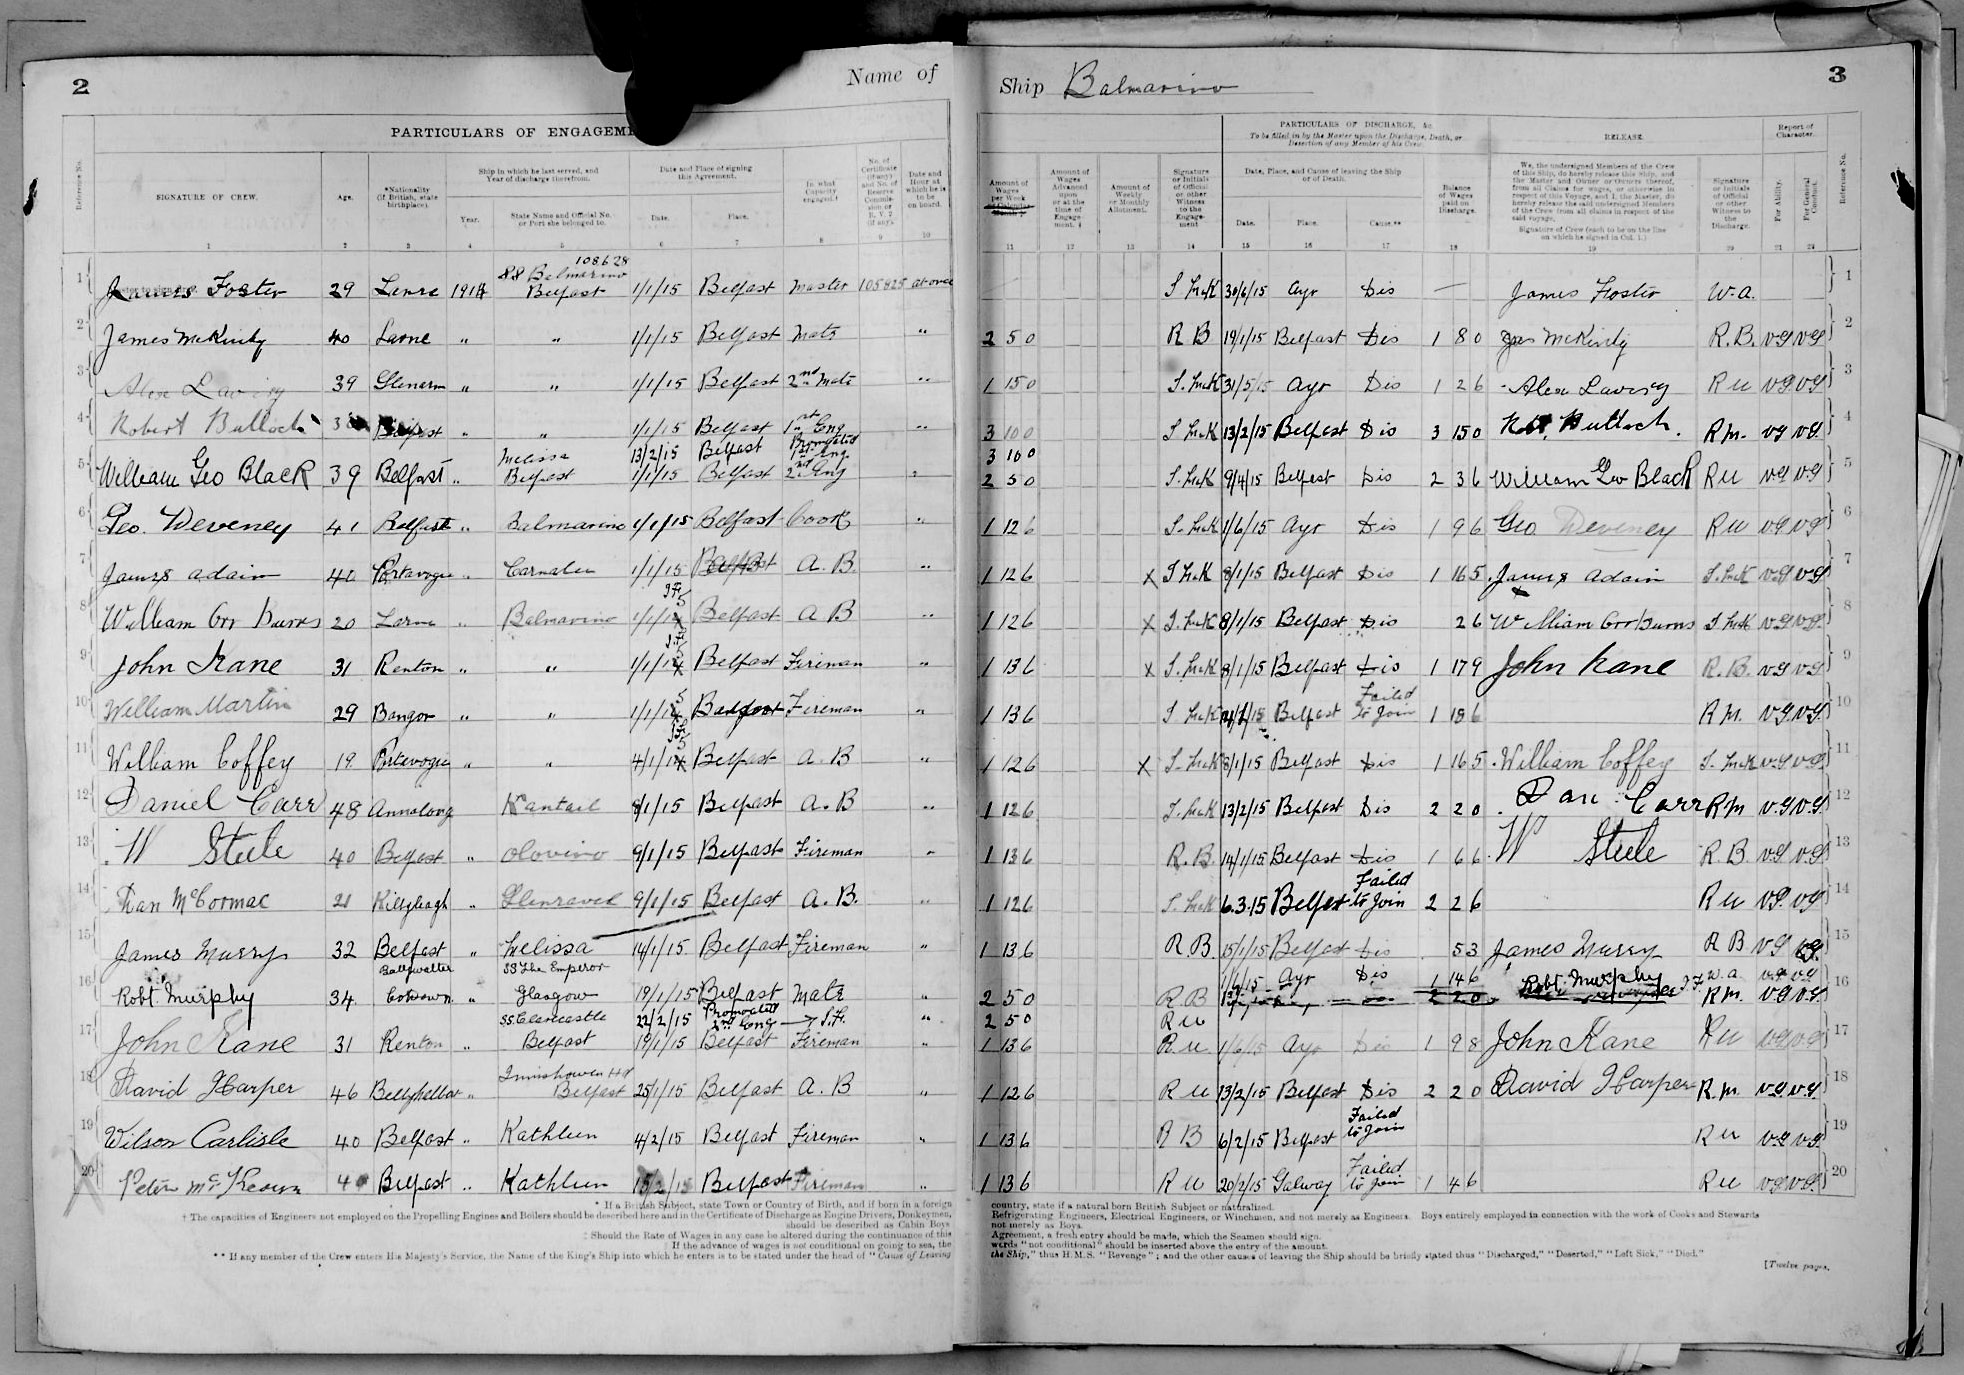 2
Name of
Ship Balmarino
3
PARTICULARS OF ENGAGEM
PARTICULARS OF DISCHARGE, &c.
To be filled in by the Master upon the Discharge, Death, or
Desertion of any Member of his Crew.
RELEASE.
Report of
Character.
Reference No.
SIGNATURE OF CREW.
Age.
*Nationality
(if British, state
birthplace).
Ship in which he last served, and
Year of discharge therefrom.
Year.
State Name and Official No.
or Port she belonged to.
Date and Place of signing
this Agreement.
Date.
Place.
In what
Capacity
engaged.†
No. of
Certificate
(if any)
and No. of
Reserve
Commission or
R. V. 2
(if any).
Date and
Hour at
which he is
to be
on board.
Amount of
Wages
per Week
Amount of
Wages
Advanced
upon
or at the
time of
Engagement. ‡
Amount of
Weekly
or Monthly
Allotment.
Signature
or Initials
of Official
or other
Witness to
the
Engagement
Date, Place, and Cause of leaving the Ship
or of Death.
Date.
Place.
Cause**
Balance
of Wages
paid on
Discharge.
We, the undersigned Members of the Crew
of this Ship, do hereby release this Ship, and
the Master and Owner or Owners thereof,
from all Claims for wages, or otherwise in
respect of this Voyage, and I, the Master, do
hereby release the said undersigned Members
of the Crew from all claims in respect of the
said voyage.
Signature of Crew (each to be on the line
on which he signed in Col. 1.)
Signature
or Initials
of Official
or other
Witness to
the
Discharge.
For Ability.
For General
Conduct.
Reference No.
1 2 3 4 5 6 7 8 9 10 11 12 13 14 15 16 17 18 19 20 21 22
108628
SS Balmarino
1 James Foster 29 Larne 1914 Belfast 1/1/15 Belfast Master 105825 at once S McK 30/6/15 Ayr Dis — James Foster W.A. 1
2 James McKinty 40 Larne " " 1/1/15 Belfast Mate " 2 5 0 R B 19/1/15 Belfast Dis 1 8 0 Jas McKinty R.B. VG VG 2
3 Alex Lavery 39 Glenarm " " 1/1/15 Belfast 2nd Mate " 1 15 0 S. McK 31/5/15 Ayr Dis 1 2 6 Alex Lavery R U VG VG 3
4 Robert Bulloch Belfast " " 1/1/15 Belfast 1st Eng " 3 10 0 S McK 13/2/15 Belfast Dis 3 15 0 Bulloch. R M. VG VG 4
Melissa 13/2/15 Belfast Promoted 1st Eng. 3 10 0
5 William Geo Black 39 Belfast " Belfast 1/1/15 Belfast 2nd Eng " 2 5 0 S. McK 9/4/15 Belfast Dis 2 3 6 William Geo Black R U VG VG 5
6 Geo. Deveney 41 Belfast " Balmarino 1/1/15 Belfast Cook " 1 12 6 S. McK 1/6/15 Ayr Dis 1 9 6 Geo Deveney R U VG VG 6
7 James Adain 40 Portavogie " Carnalea 1/1/15 Belfast A. B. " 1 12 6 X S McK 8/1/15 Belfast Dis 1 16 5 James Adain S. McK VG VG 7
8 William Orr Burns 20 Larne " Balmarino 1/1/15 Belfast A B " 1 12 6 X S. McK 8/1/15 Belfast Dis 2 6 William Orr Burns S McK VG VG 8
9 John Kane 31 Renton " " 1/1/15 Belfast Fireman " 1 13 6 X S. McK 8/1/15 Belfast Dis 1 17 9 John Kane R. B. VG VG 9
Failed
10 William Martin 29 Bangor " " 1/1/15 Fireman " 1 13 6 S McK Belfast to Join 1 18 6 R M. VG VG 10
11 William Coffey 19 Portavogie " " 4/1/15 Belfast A. B " 1 12 6 X S. McK 8/1/15 Belfast Dis 1 16 5 William Coffey S. McK VG VG 11
12 Daniel Carr 48 Annalong Kantail 8/1/15 Belfast A. B " 1 12 6 S. McK 13/2/15 Belfast Dis 2 2 0 Dan Carr R M VG VG 12
13 W Steele 40 Belfast " Olovino 9/1/15 Belfast Fireman " 1 13 6 R. B. 14/1/15 Belfast Dis 1 6 6 W Steele R. B. VG VG 13
Failed
14 Dan McCormac 21 Killyleagh " Glenravel 9/1/15 Belfast A. B. " 1 12 6 S. McK 6.3.15 Belfast to Join 2 2 6 R U VG VG 14
15 James Murry 32 Belfast " Melissa 14/1/15 Belfast Fireman " 1 13 6 R B. 15/1/15 Belfast Dis 5 3 James Murry R B VG VG 15
Ballywalter SS The Emperor 1/6/15 Ayr Dis 1 14 6 W. A VG VG
16 Robt. Murphy 34 Co Down " Glasgow 19/1/15 Belfast Mate " 2 5 0 R B 2 2 0 Robt. Murphy R M. VG VG 16
SS. Clancastle 22/2/15 Promoted 2nd Eng " 2 5 0 R U
17 John Kane 31 Renton " Belfast 19/1/15 Belfast Fireman " 1 13 6 R. U. 1/6/15 Ayr Dis 1 9 8 John Kane R U VG VG 17
Innishowen Hd
18 David Harper 46 Ballyhalbert " Belfast 25/1/15 Belfast A. B " 1 12 6 R U 13/2/15 Belfast Dis 2 2 0 David Harper R. M. VG VG 18
Failed
19 Wilson Carlisle 40 Belfast " Kathleen 4/2/15 Belfast Fireman " 1 13 6 R B 6/2/15 Belfast to Join R U VG VG 19
Failed
20 Peter McKeown Belfast " Kathleen 15/2/15 Belfast Fireman " 1 13 6 R U 20/2/15 Galway to Join 1 4 6 R U VG VG 20
* If a British Subject, state Town or Country of Birth, and if born in a foreign
† The capacities of Engineers not employed on the Propelling Engines and Boilers should be described here and in the Certificate of Discharge as Engine Drivers, Donkeymen,
should be described as Cabin Boys
‡ Should the Rate of Wages in any case be altered during the continuance of this
If the advance of wages is not conditional on going to sea, the
** If any member of the Crew enters His Majesty's Service, the Name of the King's Ship into which he enters is to be stated under the head of "Cause of Leaving
country, state if a natural born British Subject or naturalized.
Refrigerating Engineers, Electrical Engineers, or Winchmen, and not merely as Engineers. Boys entirely employed in connection with the work of Cooks and Stewards
not merely as Boys.
Agreement, a fresh entry should be made, which the Seamen should sign.
words "not conditional" should be inserted above the entry of the amount.
the Ship," thus H.M.S. "Revenge"; and the other causes of leaving the Ship should be briefly stated thus "Discharged," "Deserted," "Left Sick," "Died."
[Twelve pages.